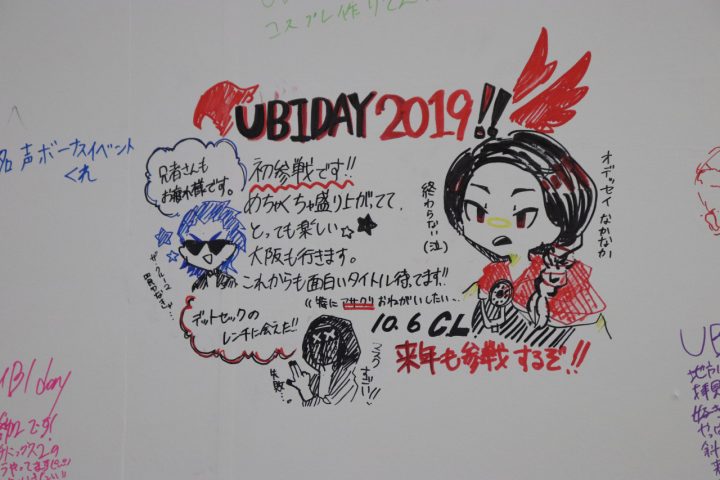 コスプレ作り
UBIDAY 2019!!
名声ボーナスイベント
くれ
兄者さんも
お疲れ様です。
初参戦です!!
めちゃくちゃ盛り上がってて、
とっても楽しい
大阪も行きます。
これからも面白いタイトル待ってます!!
おねがいしたい
オデッセイ なかなか
終わらない(泣)
デットセックの
レンチに会えた!!
失敗…
10.6 CL
来年も参戦するぞ!!
BI day
UB